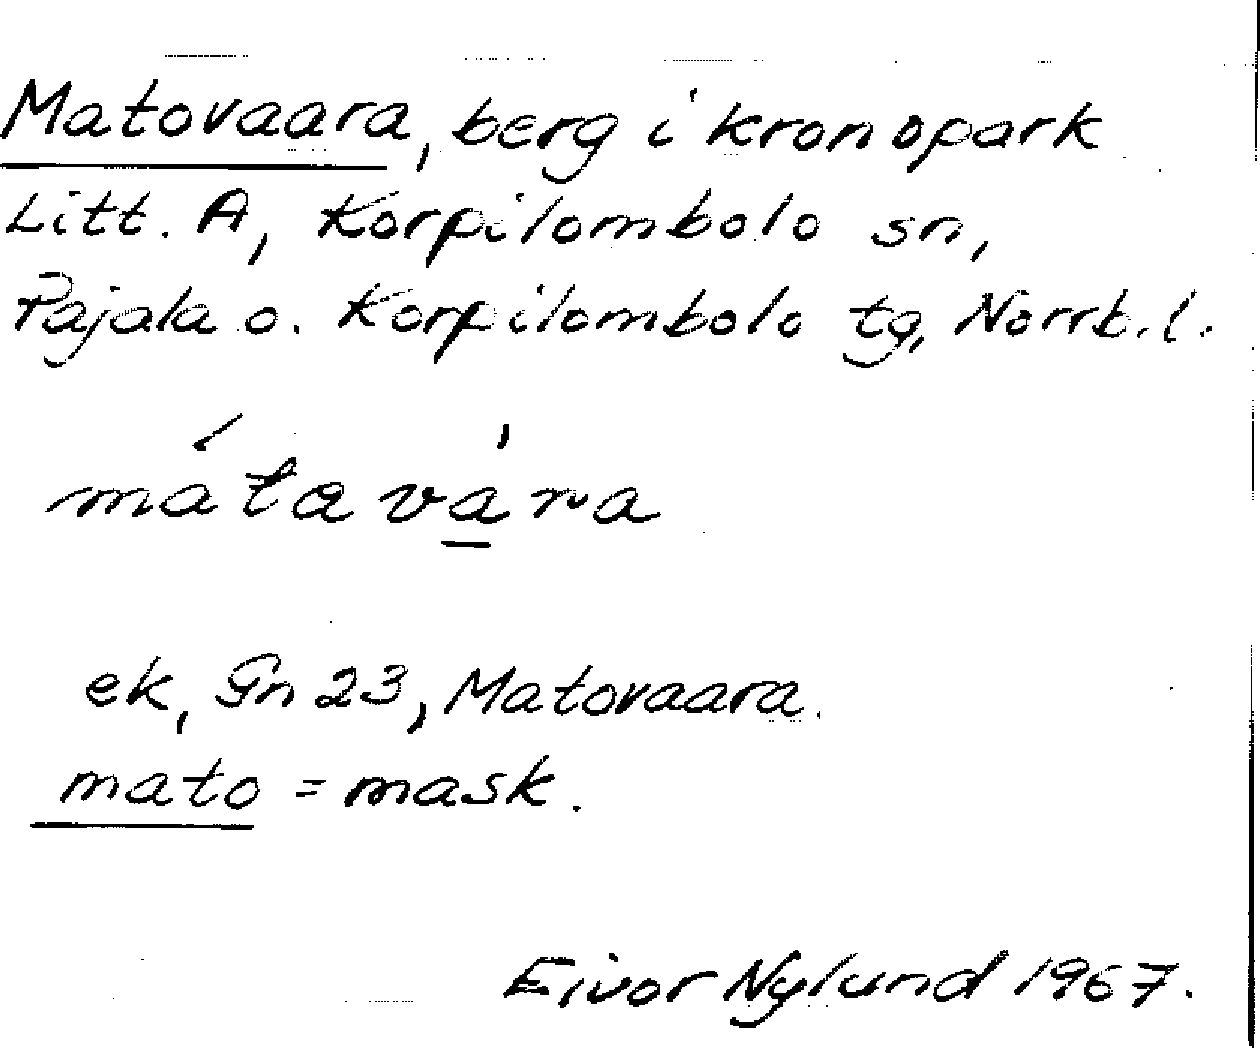 Matovaara, berg i kronopark
Litt. A, Korpilombolo sn,
Pajala o. Korpilombolo tg, Norrb.l.
mátavàra
ek, Gn 23, Matovaara.
mato = mask.
Eivor Nylund 1967.